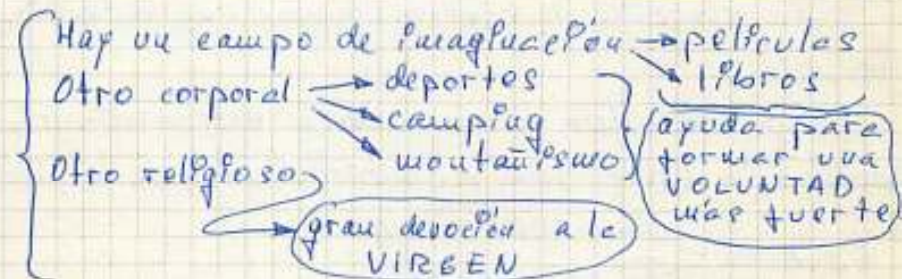 Hay un campo de imaginación → películas
→ libros
Otro corporal → deportes
→ camping
→ montañismo
ayuda para
formar una
VOLUNTAD
más fuerte
Otro religioso
→ gran devoción a la
VIRGEN